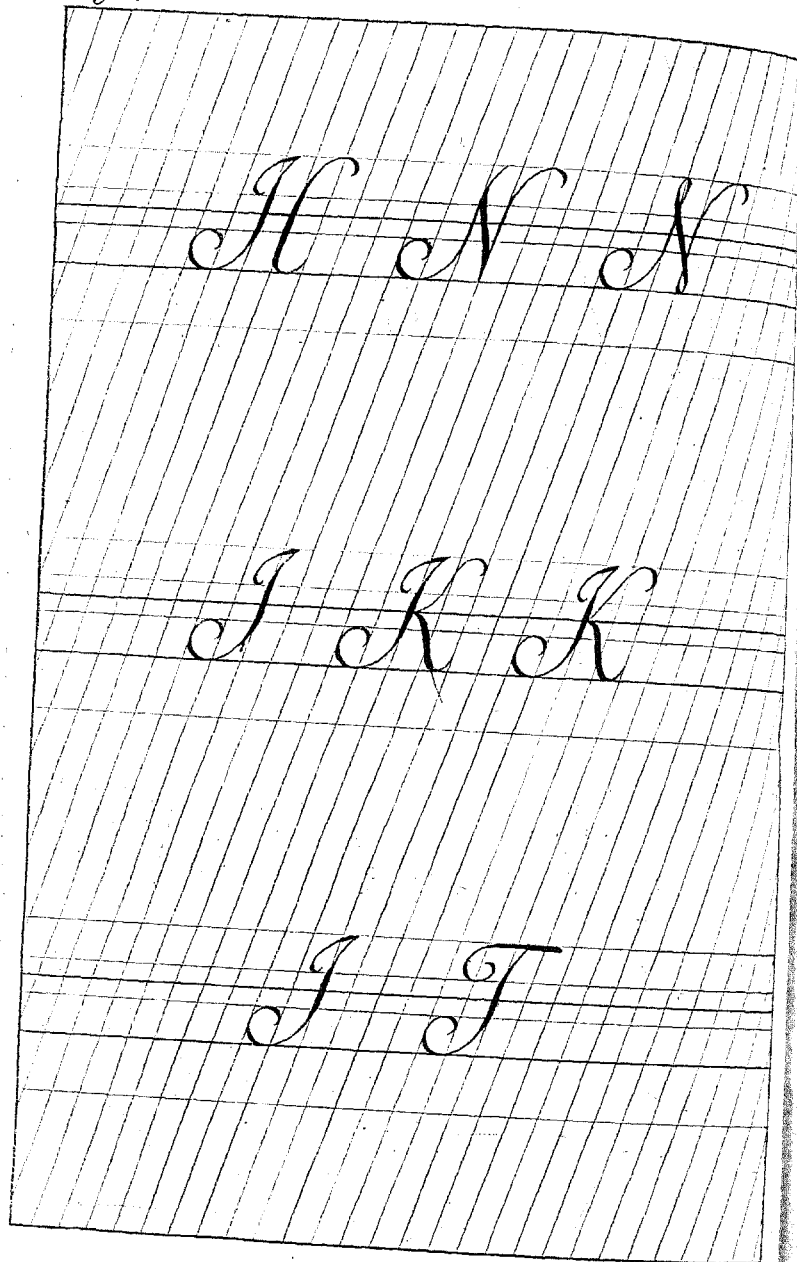 H N N
I K K
I T